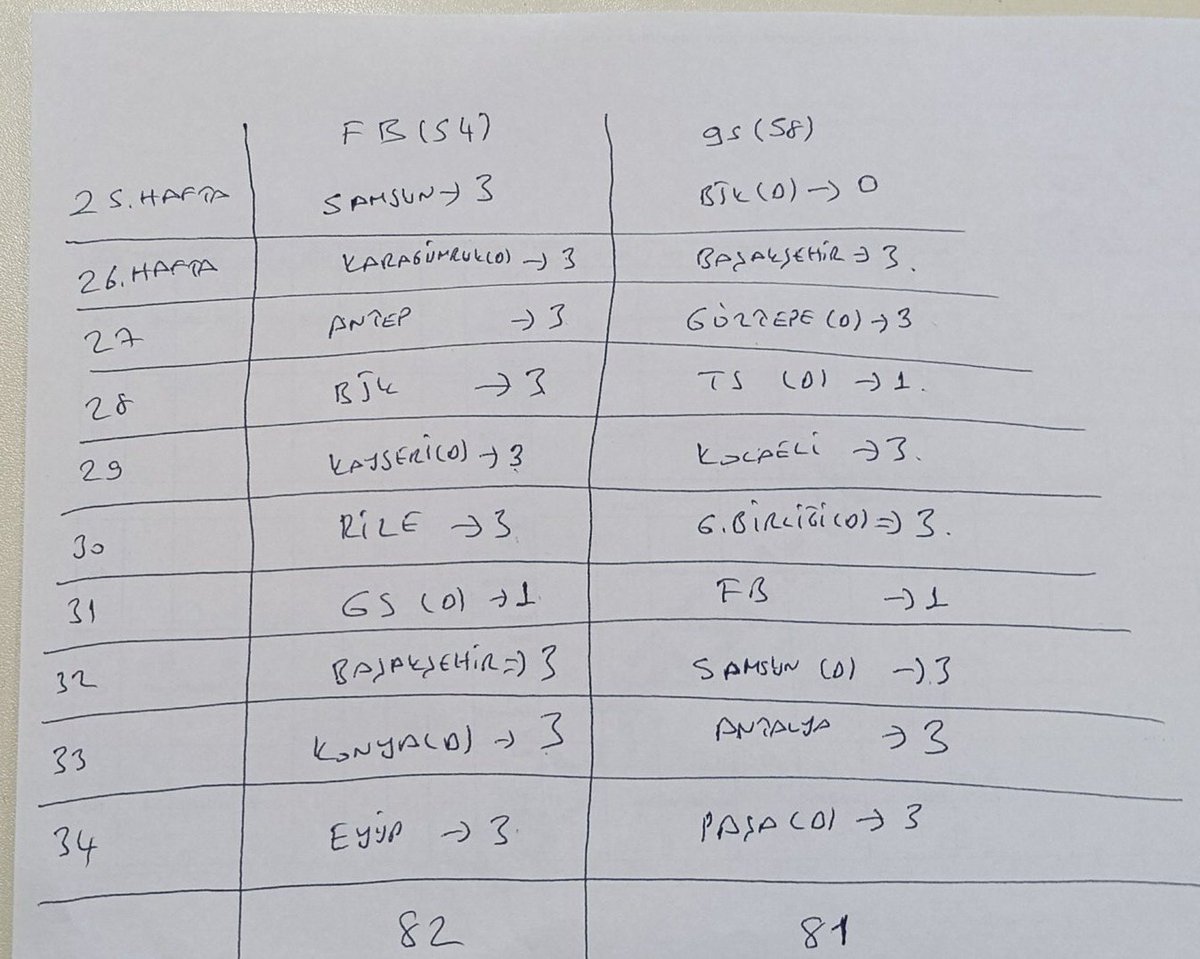 FB (54) gs (58)
25. HAFTA SAMSUN → 3 BJK (D) → 0
26. HAFTA KARAGÜMRÜK (D) → 3 BAŞAKŞEHİR → 3.
27 ANTEP → 3 GÖZTEPE (D) → 3
28 BJK → 3 TS (D) → 1.
29 KAYSERİ (D) → 3 KOCAELİ → 3.
30 RİZE → 3 G. BİRLİĞİ (D) → 3.
31 GS (D) → 1 FB → 1
32 BAŞAKŞEHİR → 3 SAMSUN (D) → 3
33 KONYA (D) → 3 ANTALYA → 3
34 EYÜP → 3 PAŞA (D) → 3
82 81